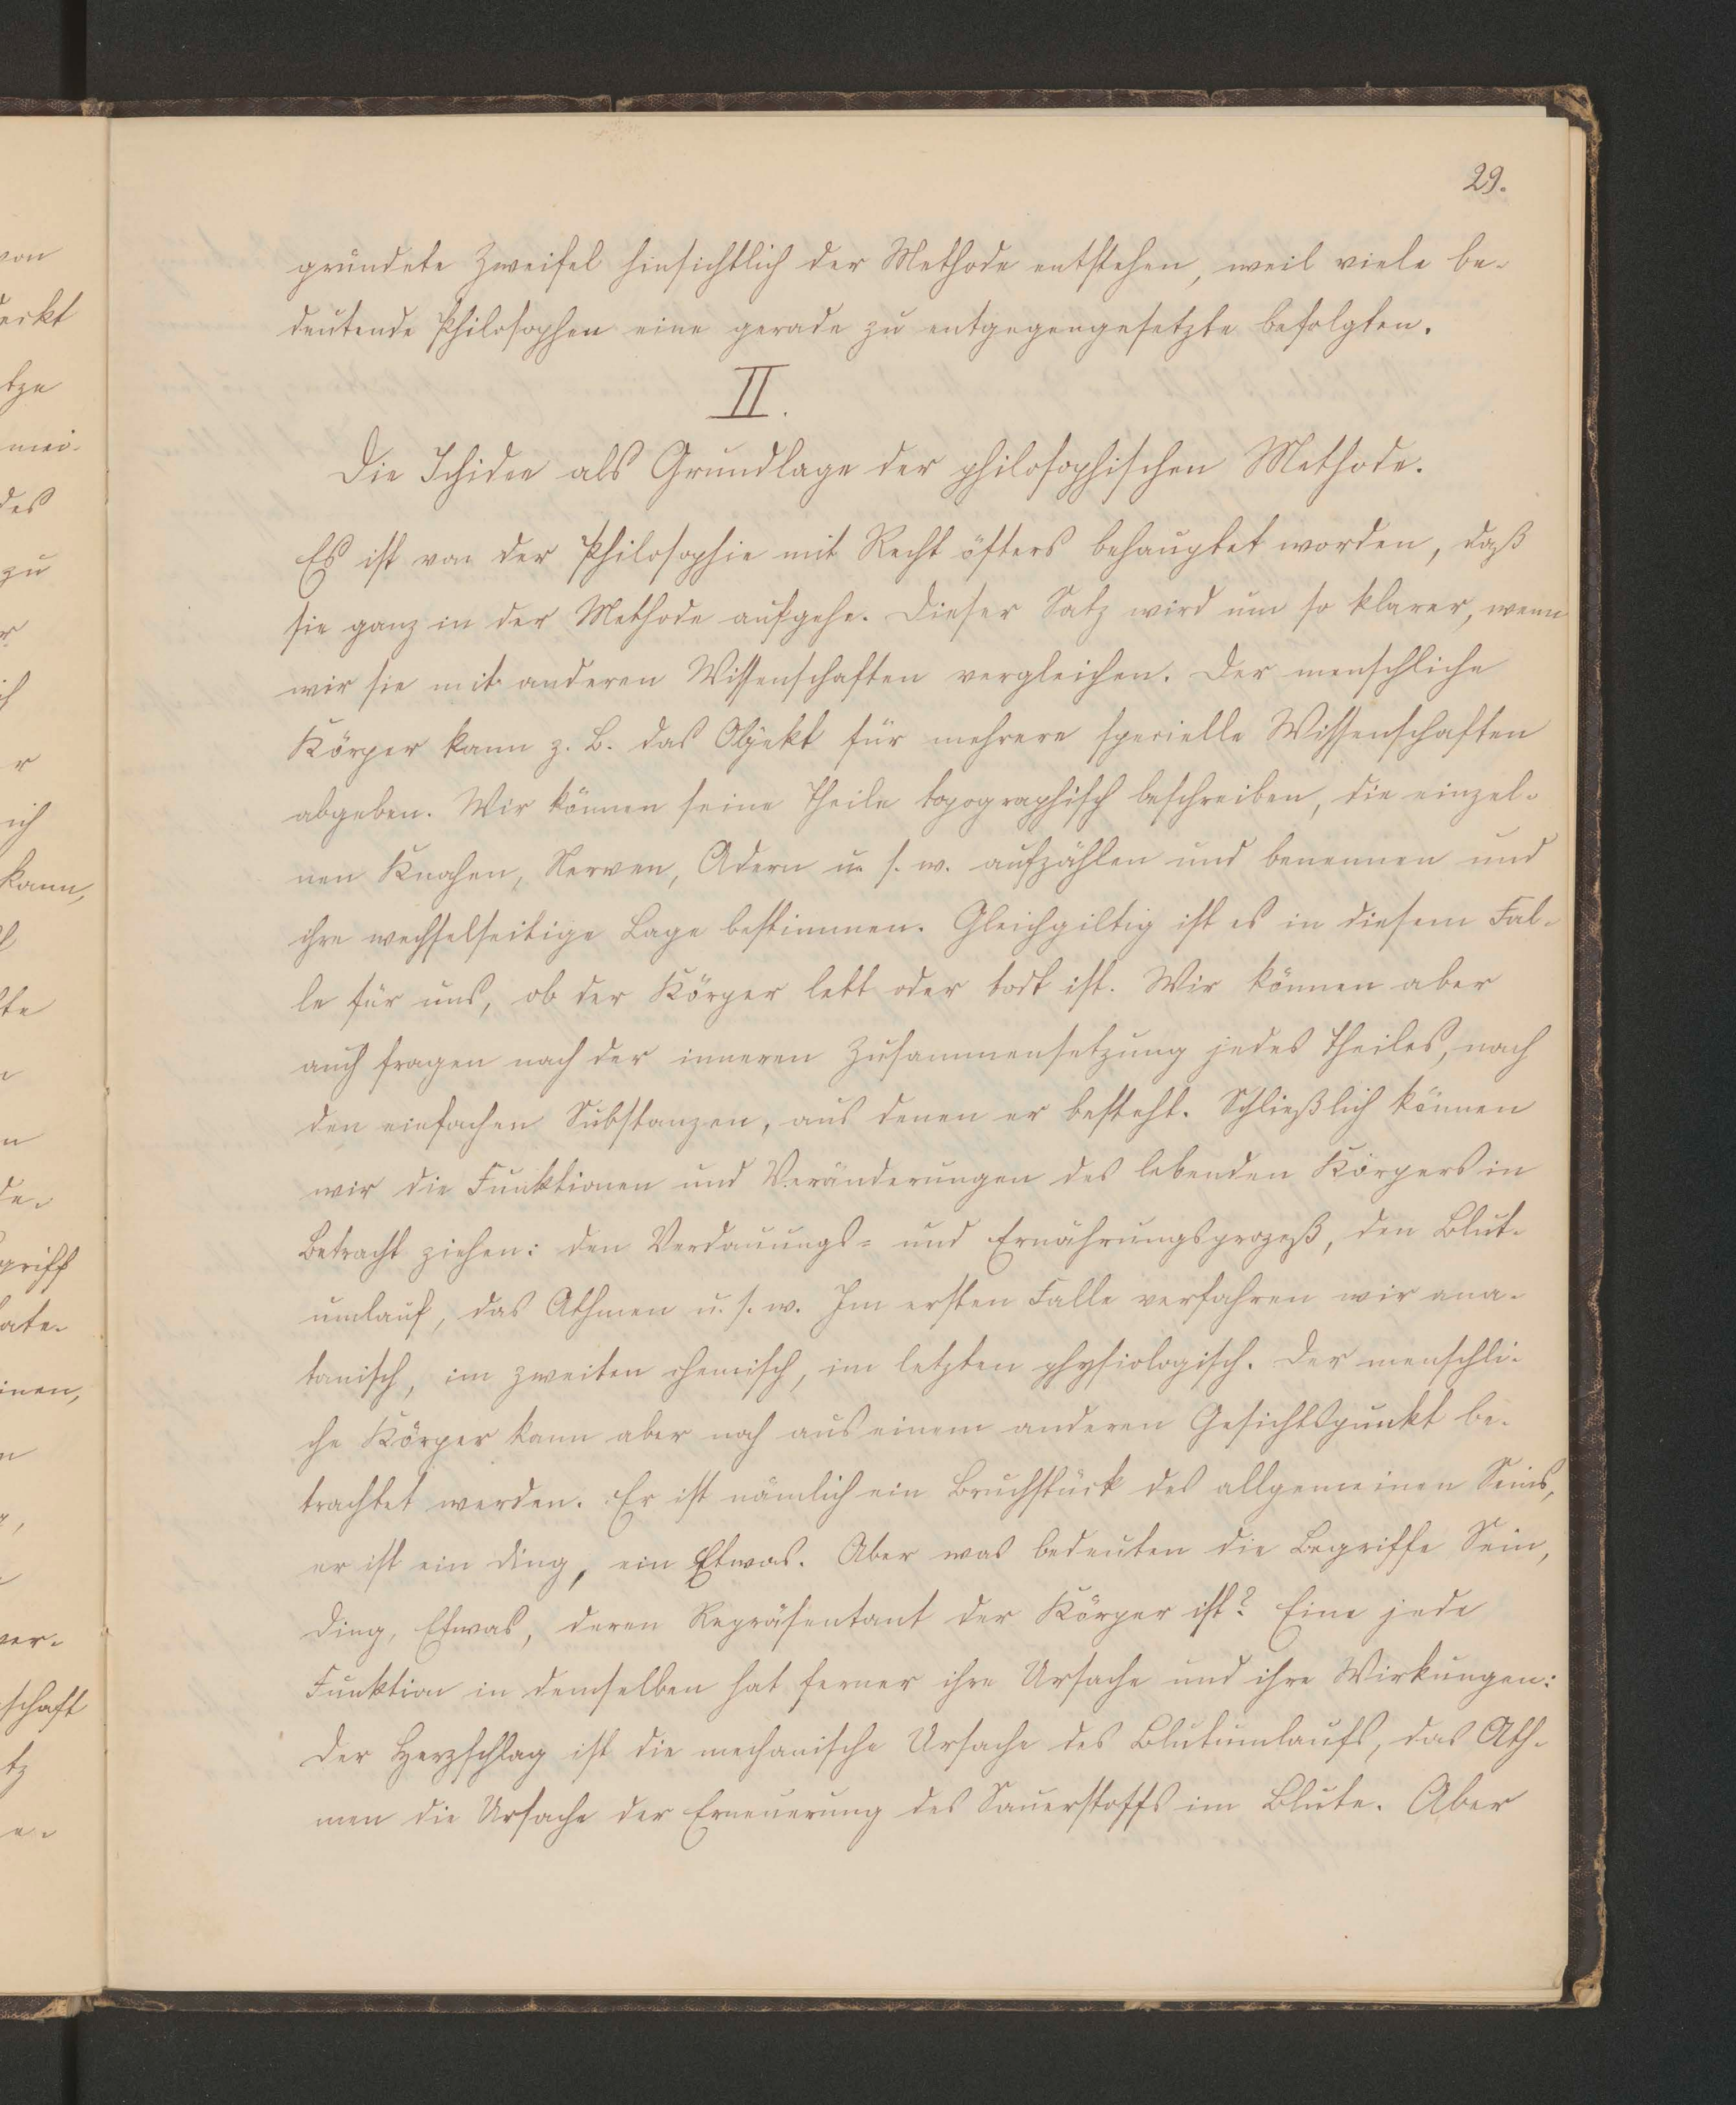 29.
gründete Zweifel hinsichtlich der Methode entstehen, weil viele be-
deutende Philosophen eine gerade zu entgegengesetzte befolgten.
II.
Die Ichidee als Grundlage der philosophischen Methode.
Es ist von der Philosophie mit Recht öfters behauptet worden, daß
sie ganz in der Methode aufgehe. Dieser Satz wird um so klarer, wenn
wir sie mit anderen Wissenschaften vergleichen. Der menschliche
Körper kann z. B. das Objekt für mehrere specielle Wissenschaften
abgeben. Wir können seine Theile topographisch beschreiben, die einzel-
nen Knochen, Nerven, Adern u. s. w. aufzählen und benennen und
ihre wechselseitige Lage bestimmen. Gleichgiltig ist es in diesem Fal-
le für uns, ob der Körper lebt oder todt ist. Wir können aber
auch fragen nach der inneren Zusammensetzung jedes Theiles, nach
den einfachen Substanzen, aus denen er besteht. Schließlich können
wir die Funktionen und Veränderungen des lebenden Körpers in
Betracht ziehen: den Verdauungs- und Ernährungsprozeß, den Blut-
umlauf, das Athmen u. s. w. Im ersten Falle verfahren wir ana-
tomisch, im zweiten chemisch, im letzten physiologisch. Der menschli-
che Körper kann aber noch aus einem anderen Gesichtspunkt be-
trachtet werden. Er ist nämlich ein Bruchstück des allgemeinen Seins,
er ist ein Ding, ein Etwas. Aber was bedeuten die Begriffe Sein,
Ding, Etwas, deren Repräsentant der Körper ist? Eine jede
Funktion in demselben hat ferner ihre Ursache und ihre Wirkungen:
Der Herzschlag ist die mechanische Ursache des Blutumlaufs, das Ath-
men die Ursache der Erneuerung des Sauerstoffs im Blute. Aber